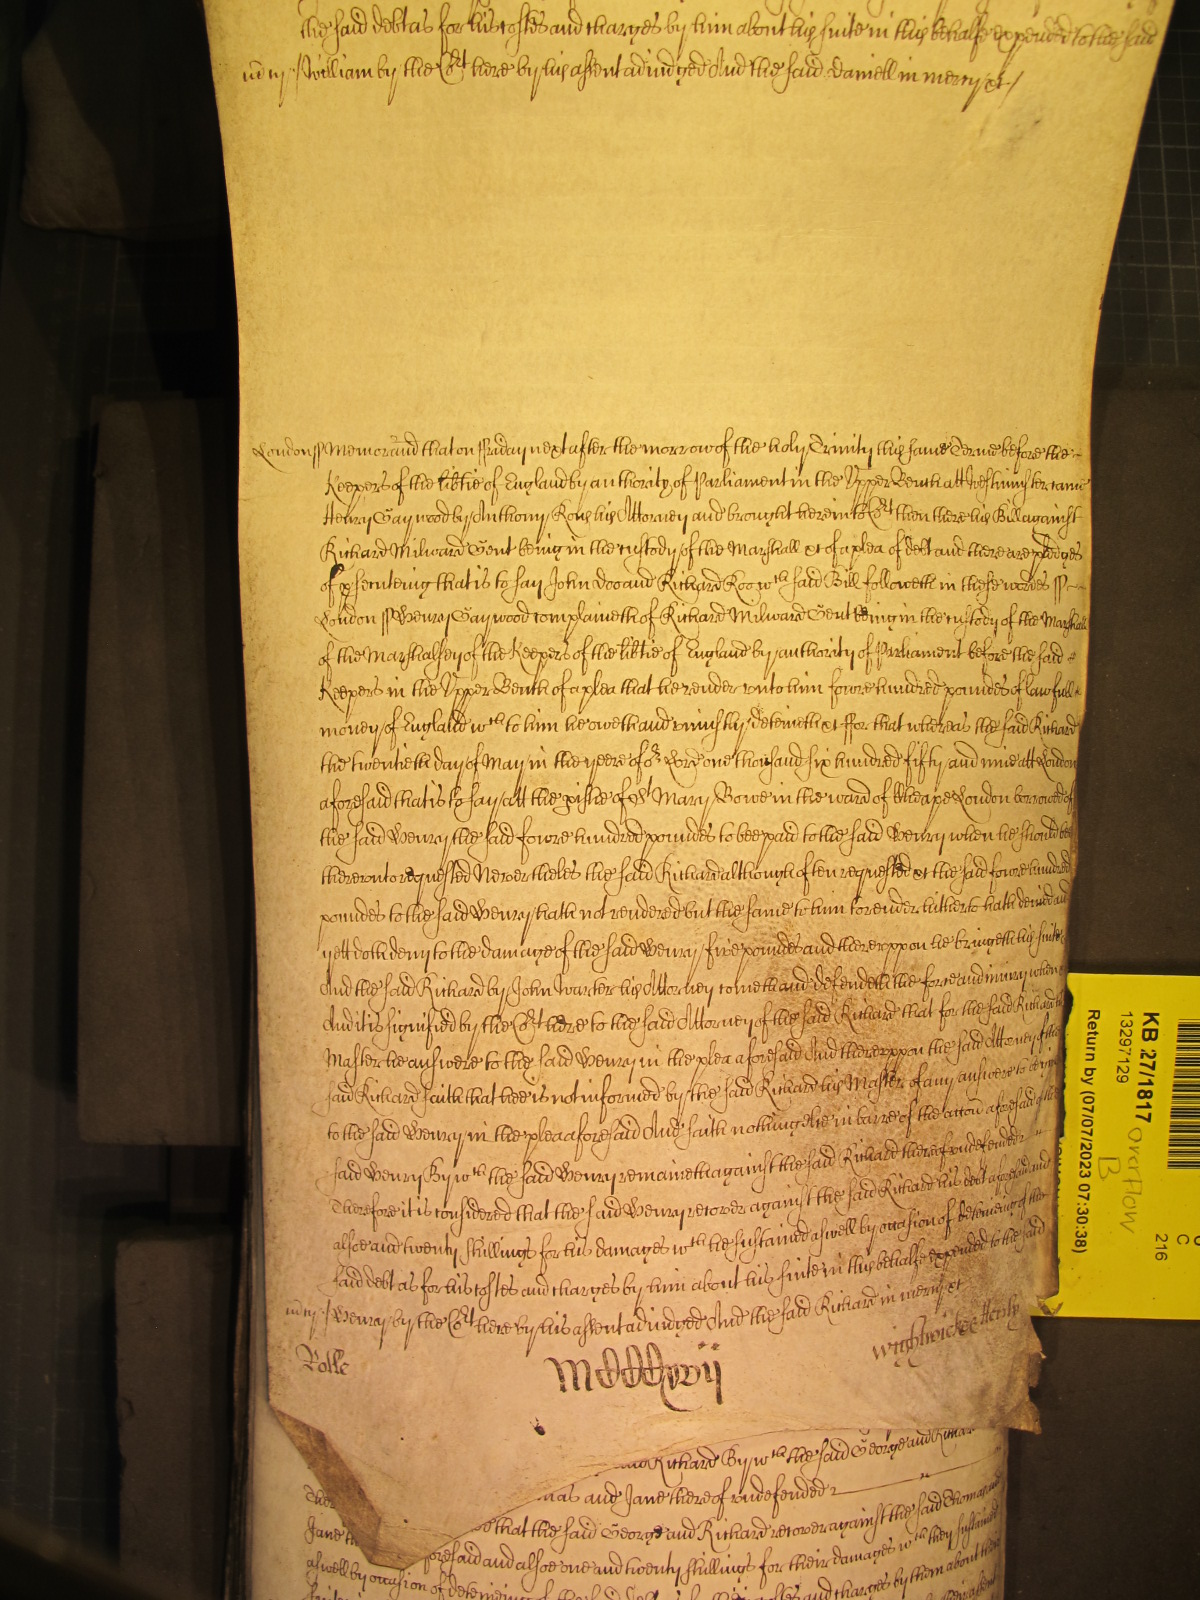 the said debt as for his costes and charges by him about his suite in this behalfe expended to the said
William by the Cort here by his assent adiudged And the said Daniell in mercy &c
London ss Memorand that on Friday next after the morrow of the holy Trinity this same Terme before the
Keepers of the libtie of England by authority of Parliament in the Upper Bench att Westminster came
Henry Gaywood by Anthony Rous his Attorney and brought here into Cort then there his Bill against
Richard Milward Gent being in the custody of the Marshall &c of a plea of debt and there are pledges
of psecuteing that is to say John Doo and Richard Roo wch said Bill followeth in these wordes ss
London ss Henry Gaywood complaineth of Richard Milward Gent being in the custody of the Marshall
of the Marshalsey of the Keepers of the libtie of England by authority of Parliament before the said
Keepers in the Upper Bench of a plea that he render unto him fowre hundred poundes of lawfull
money of England wch to him he oweth and uniustly deteineth &c For that whereas the said Richard
the twentieth day of May in the yeere of or Lord one thousand six hundred fifty and nine att London
aforesaid that is to say att the pishe of St Mary Bowe in the ward of Cheape London borrowed of
the said Henry the said fowre hundred poundes to bee paid to the said Henry when he should bee
thereunto requested Neverthelesse the said Richard although often requested &c the said fowre hundred
poundes to the said Henry hath not rendered but the same to him to render hitherto hath denied and
yett doth deny to the damage of the said Henry five poundes and thereuppon he bringeth his suite
And the said Richard by John Warter his Attorney cometh and defendeth the force and iniury when
And it is signified by the Cort here to the said Attorney of the said Richard that for the said Richard his
Master he answere to the said Henry in the plea aforesaid And thereuppon the said Attorney of the
said Richard saith that hee is not informed by the said Richard his Master of any answere to be given
to the said Henry in the plea aforesaid And saith nothing else in barre of the accon aforesaid of the
said Henry By wch the said Henry remaineth against the said Richard thereof undefended
Therefore it is considered that the said Henry recover against the said Richard his debt aforesaid and
alsoe and twenty shillings for his damages wch he sustained aswell by occasion of deteineing of the
said debt as for his costes and charges by him about his suite in this behalfe expended to the said
Henry by the Cort here by his assent adiudged And the said Richard in mercy &c
Rolle
Wightwicke Henly
Richard By wch the said George and Richard
and Jane thereof undefended
that the said George and Richard recover against the said Thomas and
Jane aforesaid and alsoe one and twenty shillings for their damages wch they sustained
aswell by occasion of deteineing of the and charges by them about their
KB 27/1817
13297129
Return by (07/07/2023 07:30:38)
overflow
B
C
216